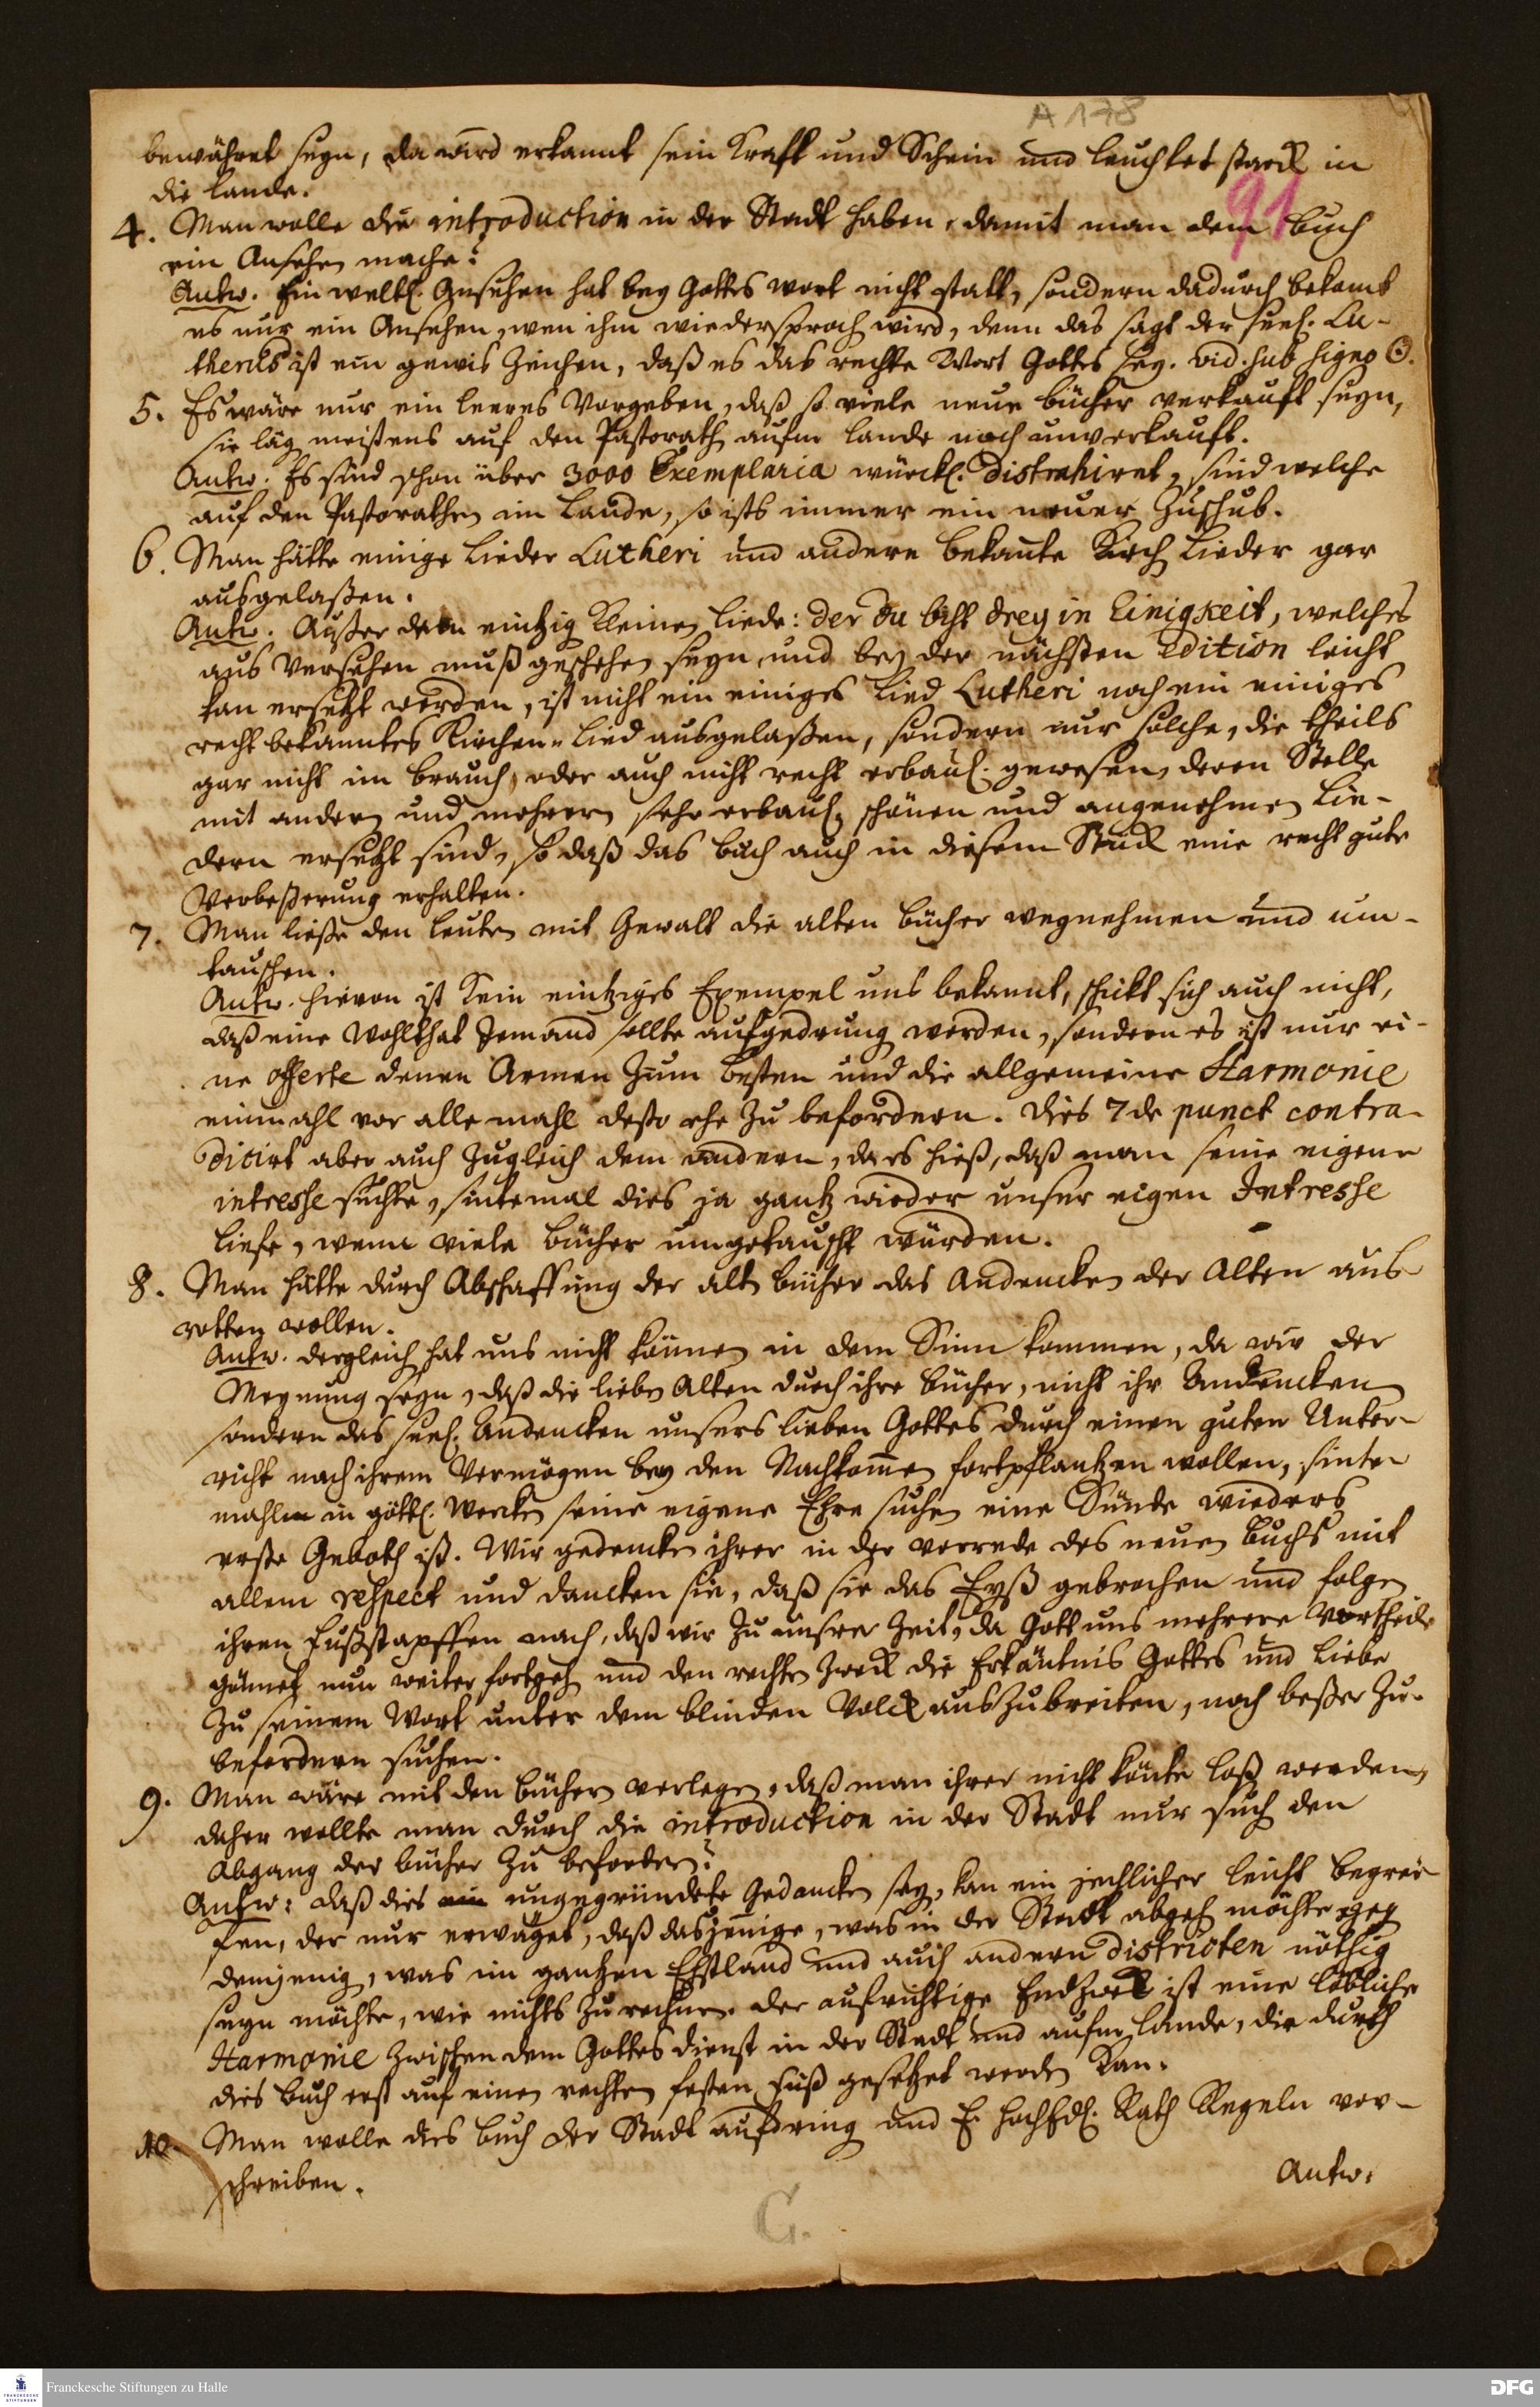 A 178
91
bewähret seyn, da wird erkannt sein Krafft und Schein und leuchtet starck in
die Lande.
4. Man wolle die introduction in der Stadt haben, damit man dem Buch
ein Ansehen mache?
Antw. Ein weltl. Ansehen hat bey Gottes wort nicht statt, sondern dadurch bekomt
es nur ein Ansehen, wen ihm wiedersproch. wird, denn das sagt der seel. Lu-
therus ist ein gewis Zeichen, daß es das rechte Wort Gottes sey. vid. sub signo ☉.
5. Es wäre nur ein leeres Vorgeben, daß so viele neue bücher verkaufft seyn,
sie läg. meistens auf den Pastorath. aufm Lande noch unverkaufft.
Antw. Es sind schon über 3000 Exemplaria würckl. distrahiret, sind welche
auf den Pastorathen im Lande, so ists immer ein neuer Zuschub.
6. Man hätte einige Lieder Lutheri und andere bekante Kirch Lieder gar
ausgelaßen.
Antw. Außer dem eintzig kleinen Liede: Der du bist drey in Einigkeit, welches
aus Versehen muß geschehen seyn und bey der nächsten Edition leicht
kan ersetzt werden, ist nicht ein einiges Lied Lutheri noch ein einiges
recht bekanntes Kirchen-Lied ausgelaßen, sondern nur solche, die theils
gar nicht im brauch, oder auch nicht recht erbaul. gewesen, deren Stelle
mit andern und mehrern sehr erbaul. schönen und angenehmen Lie-
dern ersetzt sind, so daß das buch auch in diesem Stück eine recht gute
Verbeßerung erhalten.
7. Man ließe den Leuten mit Gewalt die alten bücher wegnehmen und um-
tauschen.
Antw. hievon ist kein eintziges Exempel uns bekannt, schickt sich auch nicht,
daß eine Wohlthat Jemand sollte aufgedrung. werden, sondern es ist nur ei-
ne offerte denen Armen zum besten und die allgemeine Harmonie
einmahl vor alle mahl desto ehe zu befordern. Dies 7de punct contra-
dicirt aber auch zugleich dem andern, da es hieß, daß man seine eigene
intresse suchte, sintemal dies ja gantz wieder unser eigen Intresse
liefe, wenn viele bücher umgetauscht würden.
8. Man hätte durch Abschaffung der alt. bücher das Andencken der Alten aus
rotten wollen.
Antw. dergleich. hat uns nicht können in dem Sinn kommen, da wir der
Meynung seyn, daß die lieben Alten durch ihre bücher, nicht ihr Andencken
sondern das seel. Andencken unsers lieben Gottes durch einen guten Unter-
richt nach ihrem Vermögen bey den Nachkommen fortpflantzen wollen, sinte-
mahlen in göttl. Wercken seine eigene Ehre suchen eine Sünde wieders
erste Geboth ist. Wir gedencken ihrer in der vorrede des neuen buchs mit
allem respect und dancken sie, daß sie das Eyß gebrochen und folgen
ihren Fußstapffen nach, daß wir zu unsrer Zeit, da Gott uns mehrere Vortheile
gönnet, nun weiter fortgeh. und den rechten Zweck die Erkäntnis Gottes und Liebe
zu seinem Wort unter dem blinden Volck auszubreiten, noch beßer zu-
befordern suchen.
9. Man wäre mit den büchern verlegen, daß man ihrer nicht könte loß werden,
daher wollte man durch die introduction in der Stadt nur such den
Abgang der bücher zu befordern?
Antw: daß dies ungegründete Gedancken sey, kan ein jechlicher leicht begrei-
fen, der nur erwäget, daß dasjenige, was in der Stadt abgeh. möchte geg.
demjenig., was im gantzen Ehstland und auch andern districten nöthig
seyn möchte, wie nichts zu rechnen. der aufrichtige Endzweck ist eine löbliche
Harmonie zwischen dem Gottesdienst in der Stadt und aufm Lande, die durch
dies buch erst auf einen rechten festen Fuß gesetzet werden kan.
10. Man wolle dies buch der Stadt aufdring. und E. HochEdl. Rath Regeln vor-
schreiben.
Antw.
C.
Franckesche Stiftungen zu Halle
DFG